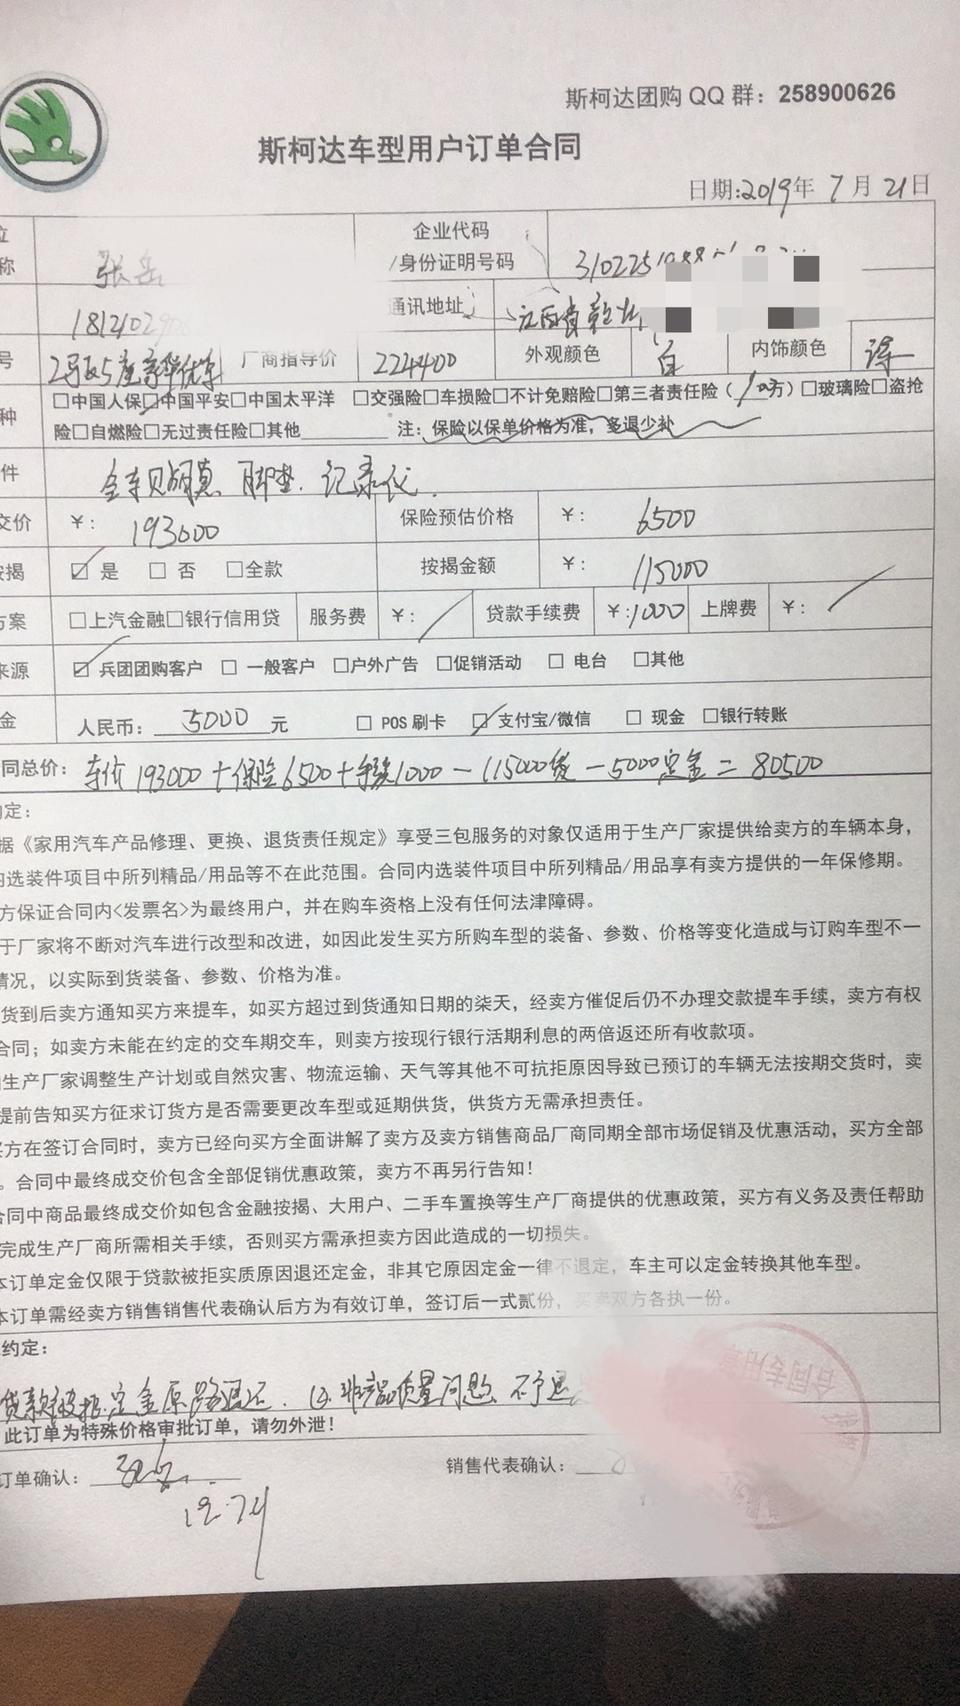 斯柯达团购 QQ 群：258900626
斯柯达车型用户订单合同
日期:2019年 7 月 21日
位
称
企业代码
/身份证明号码
通讯地址
号
厂商指导价 224400 外观颜色 白 内饰颜色
种 □中国人保□中国平安□中国太平洋 □交强险□车损险□不计免赔险□第三者责任险（ 万）□玻璃险□盗抢
险□自燃险□无过责任险□其他 注：保险以保单价格为准，多退少补
件 脚垫. 记录仪.
交价 ￥: 193000 保险预估价格 ￥: 6500
按揭 ☑ 是 □ 否 □全款 按揭金额 ￥: 115000
方案 □上汽金融□银行信用贷 服务费 ￥: 贷款手续费 ￥:1000 上牌费 ￥:
来源 ☑ 兵团团购客户 □ 一般客户 □户外广告 □促销活动 □ 电台 □其他
金 人民币: 5000 元 □ POS 刷卡 ☑ 支付宝/微信 □ 现金 □银行转账
同总价: 车价 193000 + 保险 6500 + 手续1000 - 115000贷 - 5000定金 = 80500
约定:
据《家用汽车产品修理、更换、退货责任规定》享受三包服务的对象仅适用于生产厂家提供给卖方的车辆本身，
内选装件项目中所列精品/用品等不在此范围。合同内选装件项目中所列精品/用品享有卖方提供的一年保修期。
方保证合同内<发票名>为最终用户，并在购车资格上没有任何法津障碍。
于厂家将不断对汽车进行改型和改进，如因此发生买方所购车型的装备、参数、价格等变化造成与订购车型不一
情况，以实际到货装备、参数、价格为准。
货到后卖方通知买方来提车，如买方超过到货通知日期的柒天，经卖方催促后仍不办理交款提车手续，卖方有权
合同；如卖方未能在约定的交车期交车，则卖方按现行银行活期利息的两倍返还所有收款项。
生产厂家调整生产计划或自然灾害、物流运输、天气等其他不可抗拒原因导致已预订的车辆无法按期交货时，卖
提前告知买方征求订货方是否需要更改车型或延期供货，供货方无需承担责任。
买方在签订合同时，卖方已经向买方全面讲解了卖方及卖方销售商品厂商同期全部市场促销及优惠活动，买方全部
。合同中最终成交价包含全部促销优惠政策，卖方不再另行告知！
合同中商品最终成交价如包含金融按揭、大用户、二手车置换等生产厂商提供的优惠政策，买方有义务及责任帮助
完成生产厂商所需相关手续，否则买方需承担卖方因此造成的一切损失。
本订单定金仅限于贷款被拒实质原因退还定金，非其它原因定金一律不退定，车主可以定金转换其他车型。
本订单需经卖方销售销售代表确认后方为有效订单，签订后一式贰份，买卖双方各执一份。
约定:
贷款被拒.定金原路退还. 非产品质量问题、不予退
此订单为特殊价格审批订单，请勿外泄！
订单确认: 销售代表确认:
合同专用章